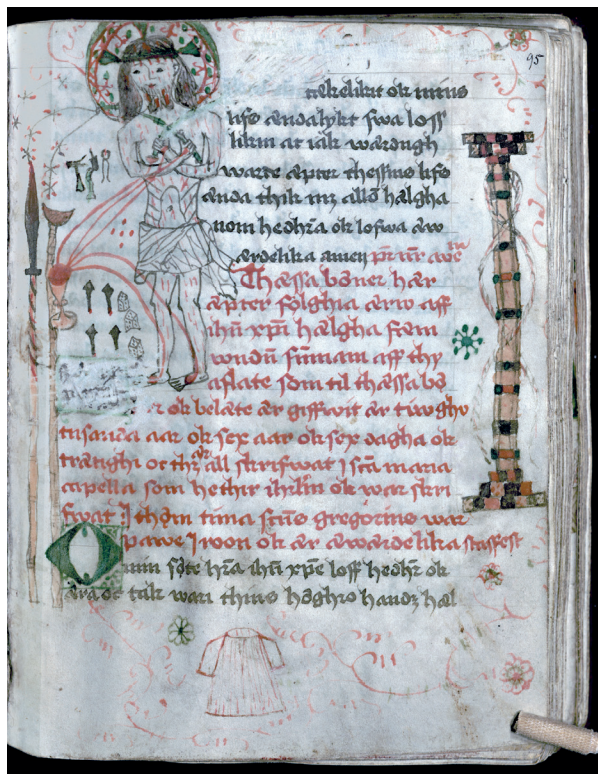 95
rekelikit ok mins
lifs ændalykt swa loff
likin at iak wardugh
warte æpter thesſins lifs
ænda thik mz allō hælgha
hedhra ok lofwa æw
ærdelika amen pr nr aue ma
Thæssa bøner hær
æpter følghia ærw aff
ihū xpi hælgha fæm
wndū aff thy
aflate som til thæssa bø
r ok belæte ær giffwit ær tiwghv
tusanda aar ok sex aar ok sex dagha ok
trætighi oc thz ær all skrifwat J sca maria
capella som hether ihrlm ok war skri
fwat J thom tima scus gregorius war
pawe J room ok ær æwærdelika staffest
O min søte hra ihu xpe loff hedhr ok
æra oc tak wari thins høghro handz hæl